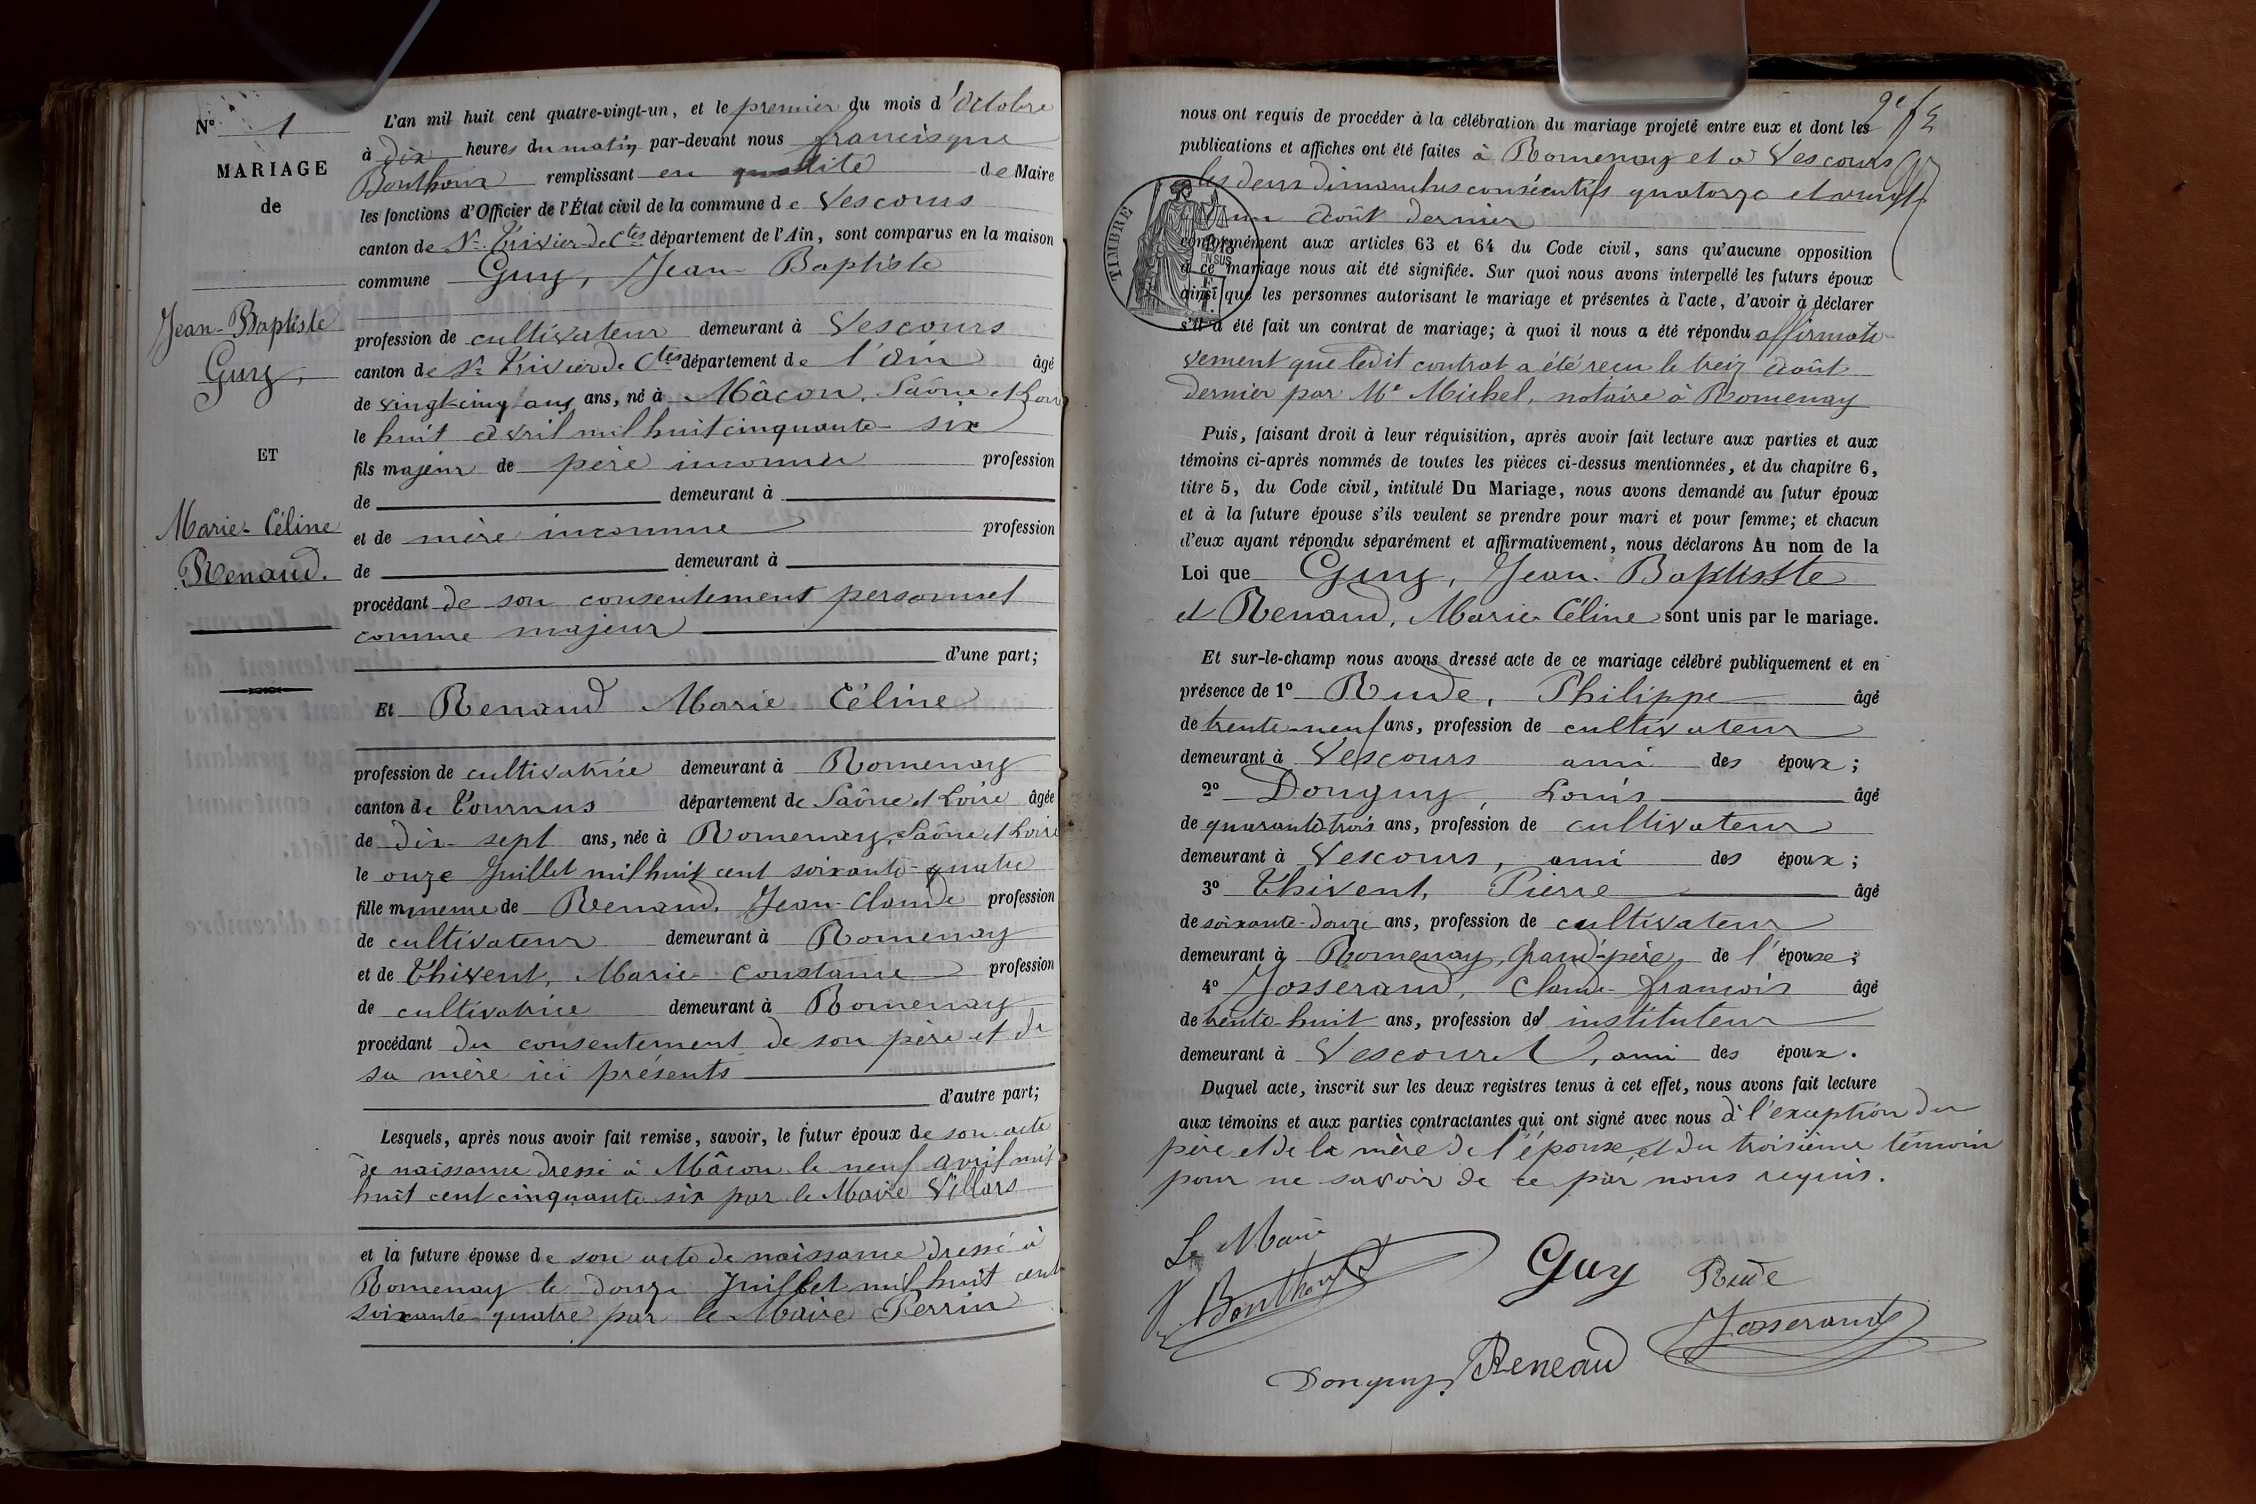 N° 1
MARIAGE
de
Jean-Baptiste
Guy,
ET
Marie-Céline
Renaud.
L'an mil huit cent quatre-vingt-un, et le premier du mois d'Octobre
à dix heures du matin par-devant nous francisque
Bonthoux remplissant en qualité de Maire
les fonctions d'Officier de l'État civil de la commune de Vescours
canton de St Trivier de Ctes département de l'Ain, sont comparus en la maison
commune Guy, Jean Baptiste
profession de cultivateur demeurant à Vescours
canton de St Trivier de Ctes département de l'Ain âgé
de vingt cinq ans ans, né à Mâcon, Saône et Loire
le huit avril mil huit cinquante-six
fils majeur de père inconnu profession
de demeurant à
et de mère inconnue profession
de demeurant à
procédant de son consentement personnel
comme majeur
d'une part;
Et Renaud Marie Céline
profession de cultivatrice demeurant à Romenay
canton de Tournus département de Saône et Loire âgée
de dix-sept ans, née à Romenay, Saône et Loire
le onze Juillet mil huit cent soixante-quatre
fille mineure de Renaud, Jean-Claude profession
de cultivateur demeurant à Romenay
et de Thivent, Marie Constance profession
de cultivatrice demeurant à Romenay
procédant du consentement de son père et de
sa mère ici présents
d'autre part;
Lesquels, après nous avoir fait remise, savoir, le futur époux de son acte
de naissance dressé à Mâcon le neuf avril mil
huit cent cinquante six par le Maire Villars
et la future épouse de son acte de naissance dressé à
Romenay le douze Juillet mil huit cent
soixante-quatre par le Maire Perrin
nous ont requis de procéder à la célébration du mariage projeté entre eux et dont les
publications et affiches ont été faites à Romenay et à Vescours
les deux dimanches consécutifs quatorze et vingt
un Août dernier
TIMBRE
conformément aux articles 63 et 64 du Code civil, sans qu'aucune opposition
à ce mariage nous ait été signifiée. Sur quoi nous avons interpellé les futurs époux
ainsi que les personnes autorisant le mariage et présentes à l'acte, d'avoir à déclarer
s'il a été fait un contrat de mariage; à quoi il nous a été répondu affirmati-
vement que ledit contrat a été reçu le treiz Août
dernier par Me Michel, notaire à Romenay
Puis, faisant droit à leur réquisition, après avoir fait lecture aux parties et aux
témoins ci-après nommés de toutes les pièces ci-dessus mentionnées, et du chapitre 6,
titre 5, du Code civil, intitulé Du Mariage, nous avons demandé au futur époux
et à la future épouse s'ils veulent se prendre pour mari et pour femme; et chacun
d'eux ayant répondu séparément et affirmativement, nous déclarons Au nom de la
Loi que Guy, Jean-Baptisste
et Renaud, Marie Céline sont unis par le mariage.
Et sur-le-champ nous avons dressé acte de ce mariage célébré publiquement et en
présence de 1° Rude, Philippe âgé
de trente-neuf ans, profession de cultivateur
demeurant à Vescours ami des époux;
2° Donguy, Louis âgé
de quarante-trois ans, profession de cultivateur
demeurant à Vescours, ami des époux;
3° Thivent, Pierre âgé
de soixante-douze ans, profession de cultivateur
demeurant à Romenay, grand-père, de l'épouse;
4° Josserand, Claude François âgé
de trente-huit ans, profession d' instituteur
demeurant à Vescours, ami des époux.
Duquel acte, inscrit sur les deux registres tenus à cet effet, nous avons fait lecture
aux témoins et aux parties contractantes qui ont signé avec nous à l'exception du
père et de la mère de l'épouse et du troisième témoin
pour ne savoir de ce par nous requis.
Le Maire
Bonthoux Guy Rude
Josserand
Donguy, Reneaud